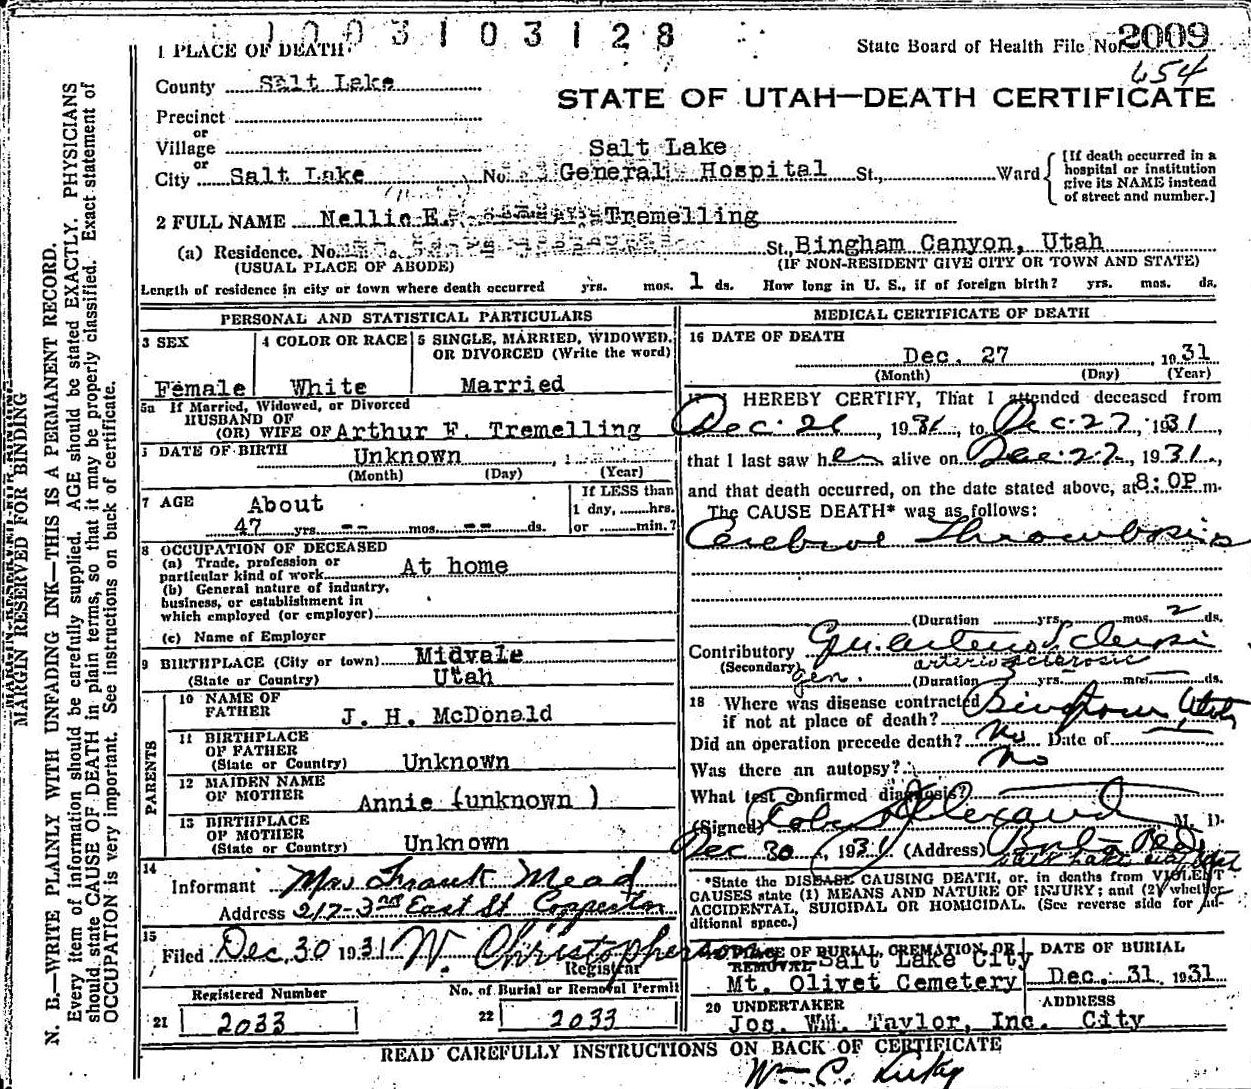 1003103128
State Board of Health File No. 2009
654
1 PLACE OF DEATH
County Salt Lake
STATE OF UTAH—DEATH CERTIFICATE
Precinct
or
Village
or
City Salt Lake No. Salt Lake General Hospital St., Ward
[If death occurred in a
hospital or institution
give its NAME instead
of street and number.]
2 FULL NAME Nellie E. Tremelling
(a) Residence. No. St., Bingham Canyon, Utah
(USUAL PLACE OF ABODE) (IF NON-RESIDENT GIVE CITY OR TOWN AND STATE)
Length of residence in city or town where death occurred yrs. mos. 1 ds. How long in U. S., if of foreign birth? yrs. mos. ds.
PERSONAL AND STATISTICAL PARTICULARS
3 SEX
Female
4 COLOR OR RACE
White
5 SINGLE, MARRIED, WIDOWED,
OR DIVORCED (Write the word)
Married
5a If Married, Widowed, or Divorced
HUSBAND OF
(OR) WIFE OF Arthur F. Tremelling
DATE OF BIRTH Unknown
(Month) (Day) (Year)
7 AGE About
47 yrs. -- mos. -- ds.
If LESS than
1 day, hrs.
or min.?
8 OCCUPATION OF DECEASED
(a) Trade, profession or
particular kind of work At home
(b) General nature of industry,
business, or establishment in
which employed (or employer)
(c) Name of Employer
9 BIRTHPLACE (City or town) Midvale
(State or Country) Utah
PARENTS
10 NAME OF
FATHER J. H. McDonald
11 BIRTHPLACE
OF FATHER
(State or Country) Unknown
12 MAIDEN NAME
OF MOTHER Annie (unknown )
13 BIRTHPLACE
OF MOTHER
(State or Country) Unknown
14
Informant Mrs Frank Mead
Address 217-3rd East St Copperton
15
Filed Dec, 30 1931 W. Christopherson
Registrar
Registered Number
21 2033
No. of Burial or Removal Permit
22 2033
MEDICAL CERTIFICATE OF DEATH
16 DATE OF DEATH
Dec. 27 1931
(Month) (Day) (Year)
I HEREBY CERTIFY, That I attended deceased from
Dec. 26, 1931, to Dec. 27, 1931,
that I last saw her alive on Dec. 27, 1931,
and that death occurred, on the date stated above, at 8:0P m.
The CAUSE DEATH* was as follows:
Cerebral Thrombosis
(Duration yrs. mos. 2 ds.
Contributory Gen. arterio Sclerosis
(Secondary) gen. arterio sclerosis
(Duration yrs. mos. ds.
18 Where was disease contracted
if not at place of death? Bingham Utah
Did an operation precede death? No Date of
Was there an autopsy? No
What test confirmed diagnosis?
(Signed) M. D.
Dec 30, 1931 (Address)
*State the DISEASE CAUSING DEATH, or, in deaths from VIOLENT
CAUSES state (1) MEANS AND NATURE OF INJURY; and (2) whether
ACCIDENTAL, SUICIDAL OR HOMICIDAL. (See reverse side for ad-
ditional space.)
PLACE OF BURIAL, CREMATION OR
REMOVAL Salt Lake City
Mt. Olivet Cemetery
DATE OF BURIAL
Dec. 31 1931
20 UNDERTAKER
Jos. Wm. Taylor, Inc.
ADDRESS
City
READ CAREFULLY INSTRUCTIONS ON BACK OF CERTIFICATE
MARGIN RESERVED FOR BINDING
N. B.—WRITE PLAINLY WITH UNFADING INK—THIS IS A PERMANENT RECORD.
Every item of information should be carefully supplied. AGE should be stated EXACTLY. PHYSICIANS
should state CAUSE OF DEATH in plain terms, so that it may be properly classified. Exact statement of
OCCUPATION is very important. See instructions on back of certificate.